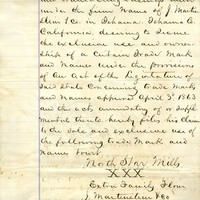 under the firm Name of J. Marti
& Co. in Tehama. Tehama Co.
California, desiring to secure
the exclusive use and owner
ship of a certain Trade Mark
and Names under the provisions
of An Act of the Legislature of
said State Concerning Trade Marks
and Names approved April 3d 1863
and the acts amendatory of & suppl
mental thereto hereby files his claim
to the sole and exclusive use of
the following Trade Mark and
names to wit:
North Star Mills
XXX
Extra Family Flour
J. Martinelli & Co.